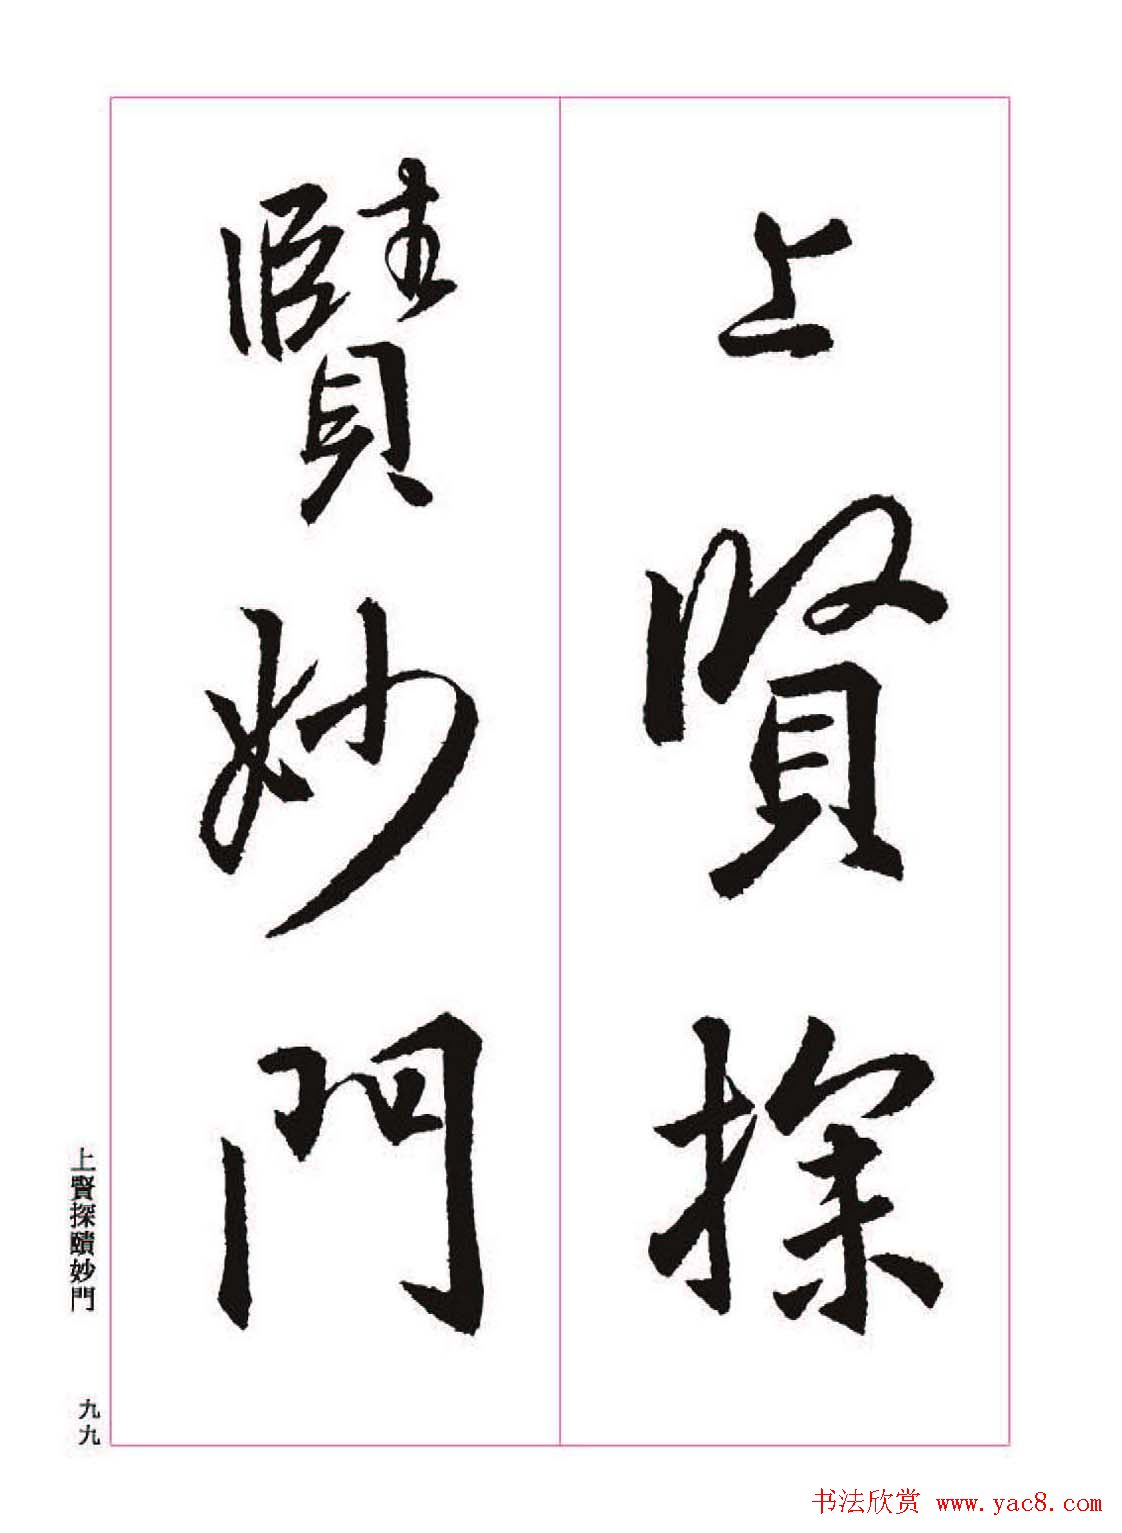 上賢探
賾妙門
上賢探賾妙門
九九
书法欣赏 www.yac8.com